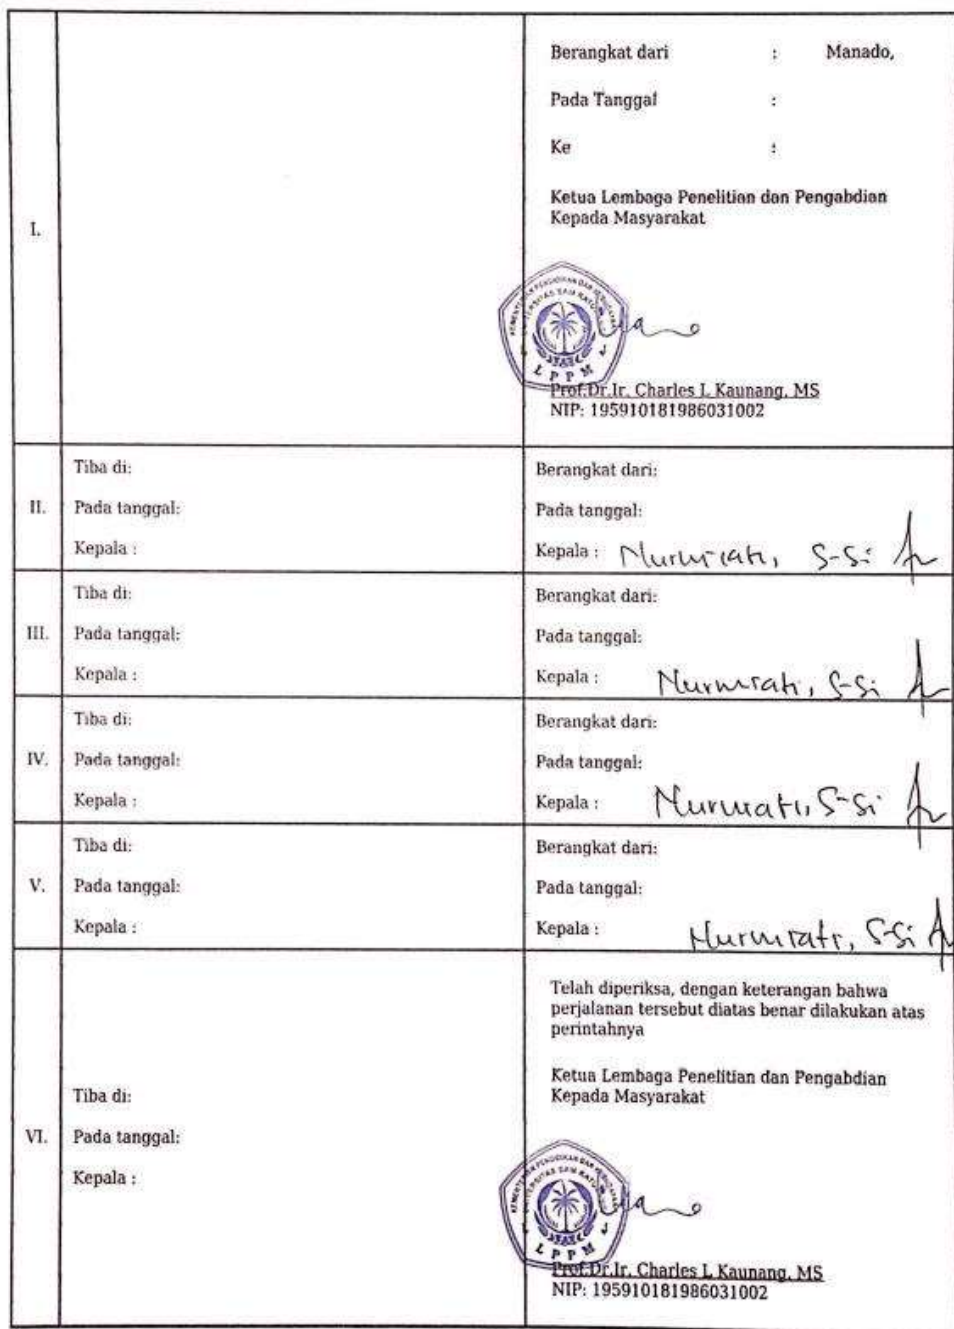 I.
Berangkat dari : Manado,
Pada Tanggal :
Ke :
Ketua Lembaga Penelitian dan Pengabdian
Kepada Masyarakat
KEMENTERIAN PENDIDIKAN DAN KEBUDAYAAN
UNIVERSITAS SAM RATULANGI
LPPM
Prof.Dr.Ir. Charles L Kaunang, MS
NIP: 195910181986031002
II.
Tiba di:
Pada tanggal:
Kepala :
Berangkat dari:
Pada tanggal:
Kepala : Nurmiati, S-Si
III.
Tiba di:
Pada tanggal:
Kepala :
Berangkat dari:
Pada tanggal:
Kepala : Nurmiati, S-Si
IV.
Tiba di:
Pada tanggal:
Kepala :
Berangkat dari:
Pada tanggal:
Kepala : Nurmiati, S-Si
V.
Tiba di:
Pada tanggal:
Kepala :
Berangkat dari:
Pada tanggal:
Kepala : Nurmiati, S-Si
VI.
Tiba di:
Pada tanggal:
Kepala :
Telah diperiksa, dengan keterangan bahwa
perjalanan tersebut diatas benar dilakukan atas
perintahnya
Ketua Lembaga Penelitian dan Pengabdian
Kepada Masyarakat
KEMENTERIAN PENDIDIKAN DAN KEBUDAYAAN
UNIVERSITAS SAM RATULANGI
LPPM
Prof.Dr.Ir. Charles L Kaunang, MS
NIP: 195910181986031002